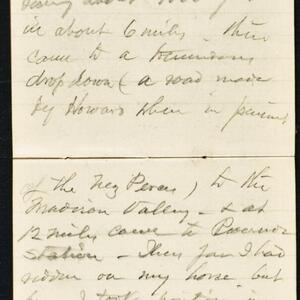 in about 6 miles - then
came to a tremendous
drop down (a road made
by Howard when in pursuit
of the Nez Perces) to the
Madison Valley - & at
12 miles came to
Station - Thus far I had
ridden on my horse but